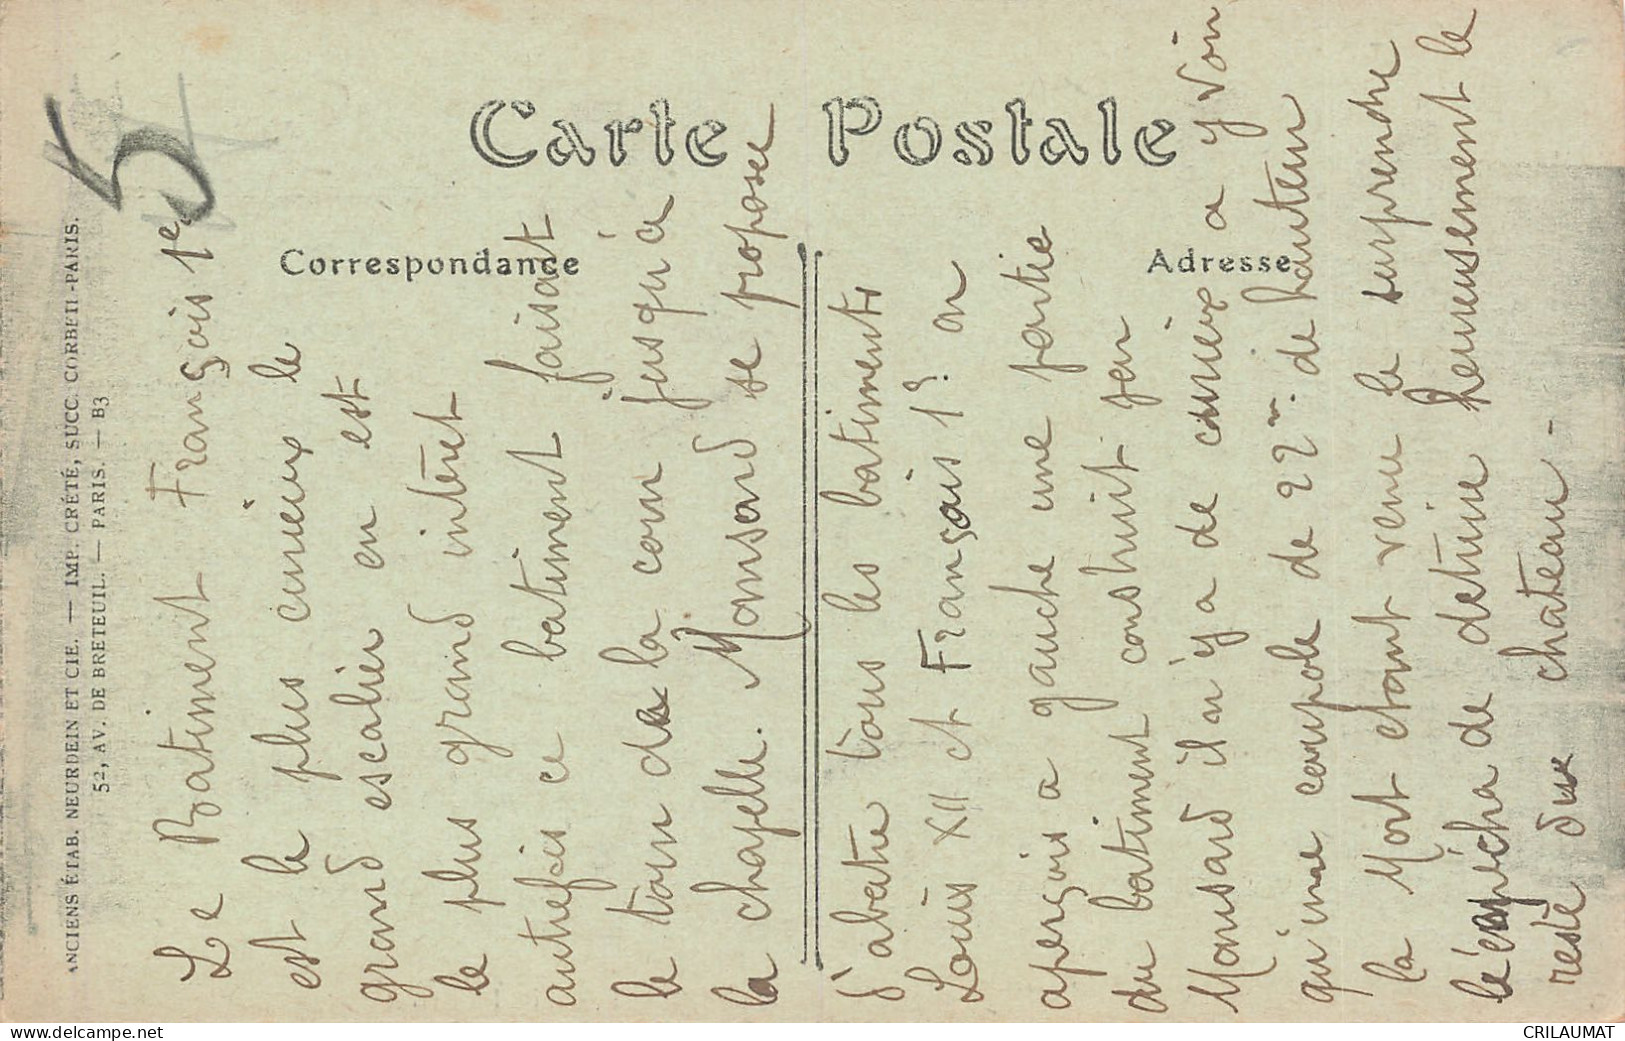 Carte Postale
Correspondance
Adresse
ANCIENS ÉTAB. NEURDEIN ET CIE. — IMP. CRÉTÉ, SUCC. CORBEIL-PARIS.
52, AV. DE BRETEUIL. — PARIS. — B3
5
Le Batiment François 1er
est le plus curieux le
grand escalier en est
le plus grand intéret
autrefois ce batiment faisait
le tour de la cour jusqu'à
la chapelle. Mansard se proposer
d'abattre tous les batiments
Louis XII et François 1er. on
aperçois a gauche une partie
du batiment construit par
Mansard il n'y a de curieux a y voir
qu'une coupole de 22m. de hauteur
la Mort etant venu le surprendre
l'épécha de detruire heureusement le
reste du chateau -
www.delcampe.net
CRILAUMAT